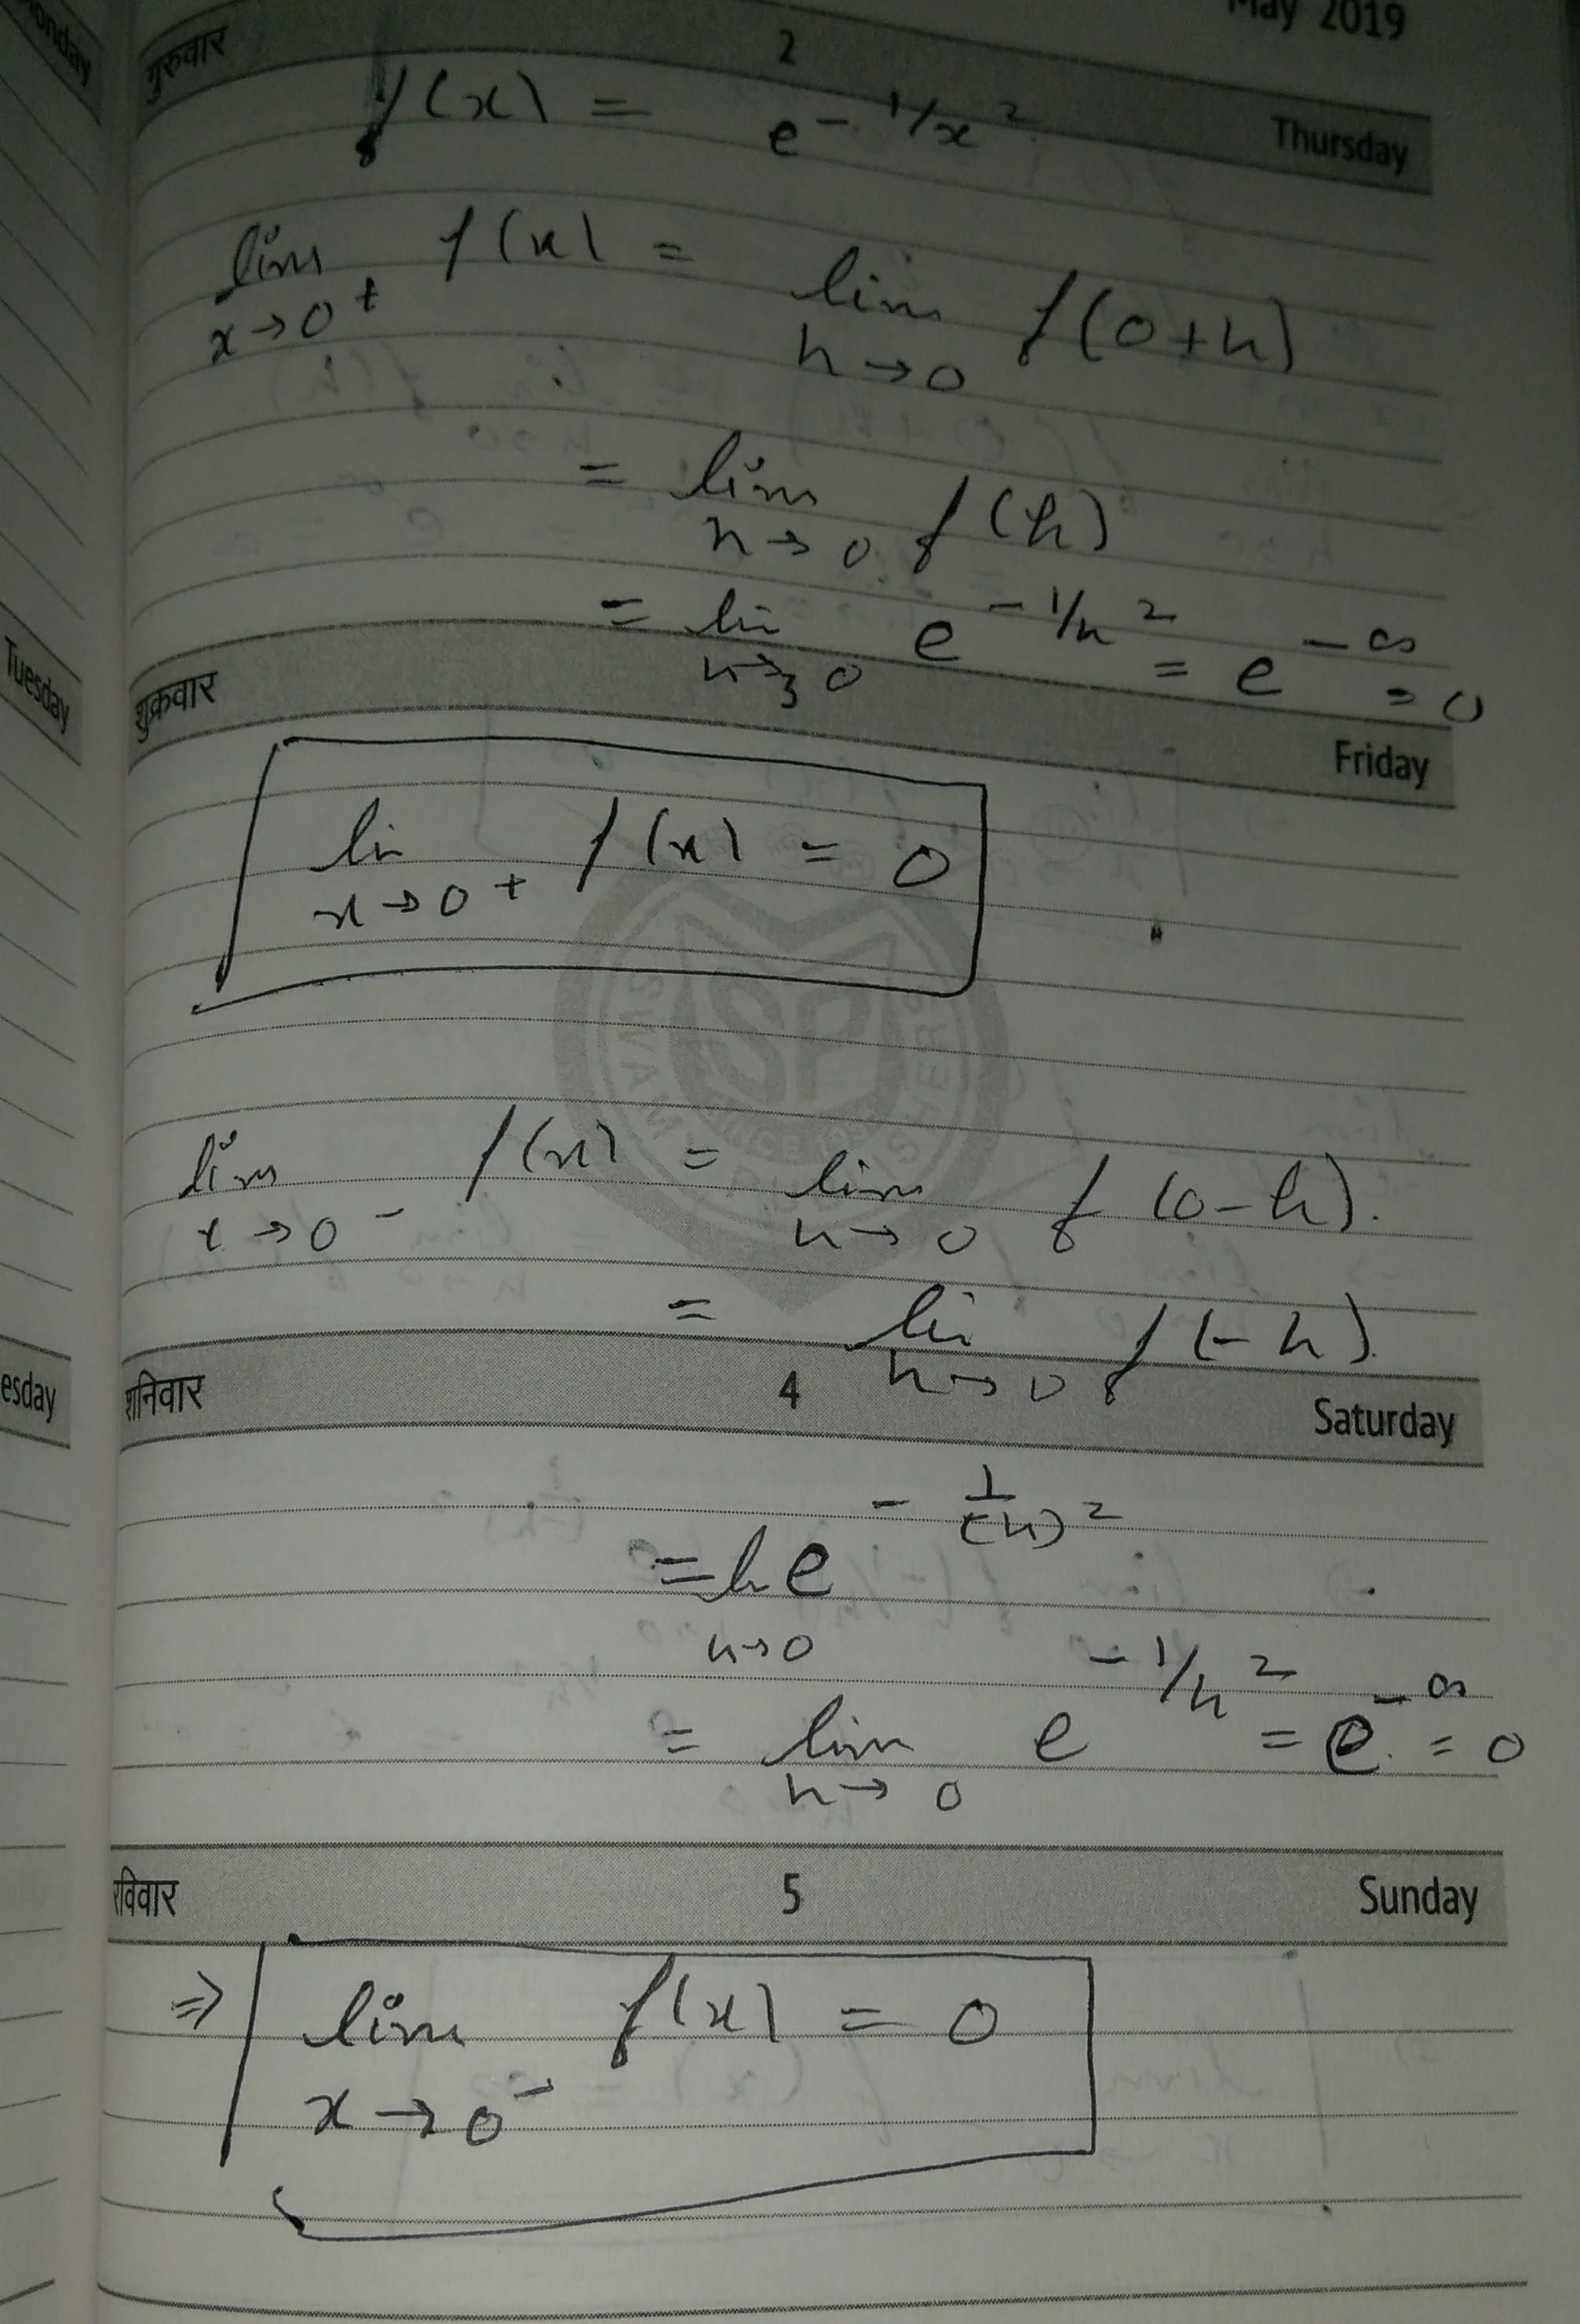 May 2019
onday
गुरुवार 2 Thursday
f(x) = e^{-1/x^2}
lim x→0+ f(x) = lim h→0 f(0+h)
= lim h→0 f(h)
= li h→0 e^{-1/h^2} = e^{-∞} = 0
Tuesday
शुक्रवार 3 Friday
li x→0+ f(x) = 0
lim x→0- f(x) = lim h→0 f(0-h).
= li h→0 f(-h).
esday
शनिवार 4 Saturday
= li h→0 e^{-1/(-h)^2}
= lim h→0 e^{-1/h^2} = e^{-∞} = 0
रविवार 5 Sunday
⇒ lim x→0- f(x) = 0